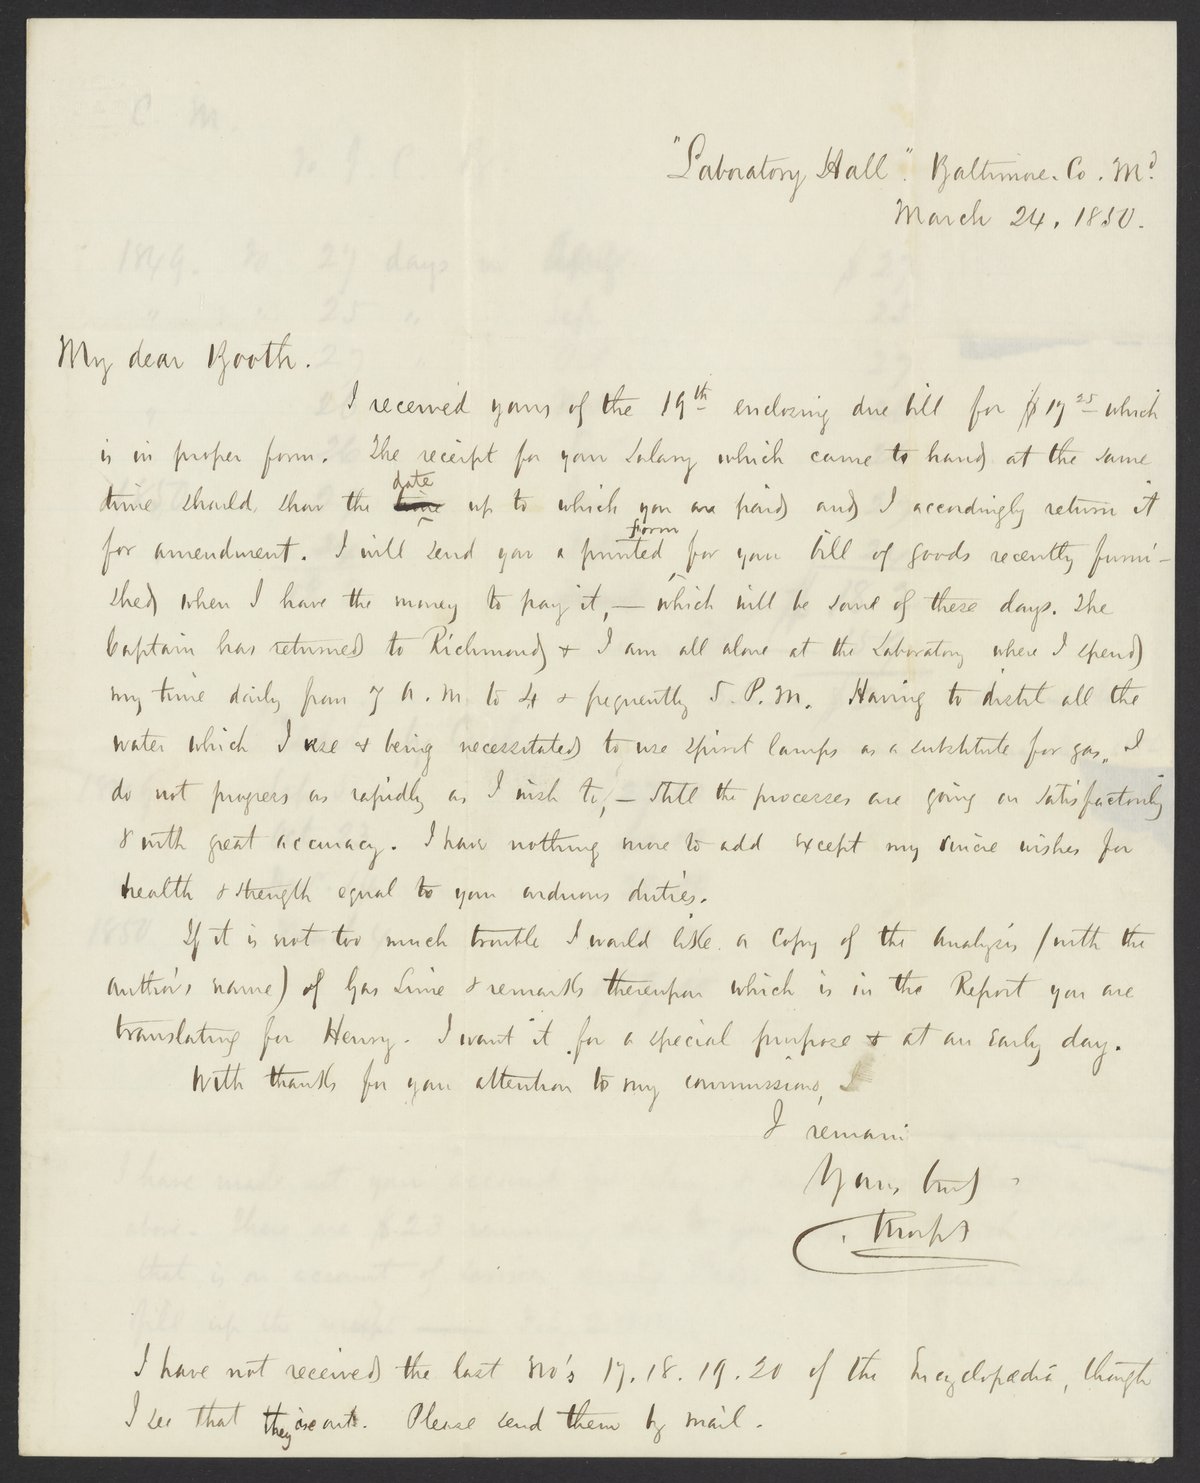 "Laboratory Hall". Baltimore. Co. Md.
March 24, 1850.
My dear Booth.
I received yours of the 19th enclosing due bill for $17 25 which
is in proper form. The receipt for your salary which came to hand at the same
date
time should show the time up to which you are paid and I accordingly return it
form
for amendment. I will send you a printed for your bill of goods recently furni-
shed when I have the money to pay it, — which will be some of these days. The
Captain has returned to Richmond & I am all alone at the Laboratory where I spend
my time daily from 7 A.M. to 4 & frequently 5. P.M. Having to distil all the
water which I use & being necessitated to use spirit lamps as a substitute for gas, I
do not progress as rapidly as I wish to, — still the processes are going on satisfactorily
& with great accuracy. I have nothing more to add except my sincere wishes for
health & strength equal to your arduous duties.
If it is not too much trouble I would like a copy of the analysis (with the
author's name) of Gas Lime & remarks thereupon which is in the Report you are
translating for Henry. I want it for a special purpose & at an early day.
With thanks for your attention to my commissions, I
I remain
Yours truly
I have not received the last No's 17. 18. 19. 20 of the Encyclopædia, though
I see that they are out. Please send them by mail.